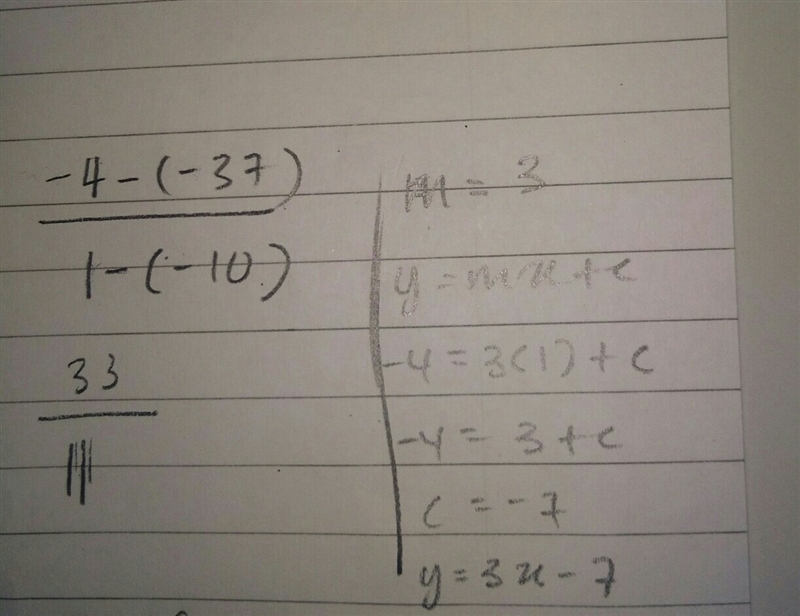 -4-(-37)
1-(-10)
33
11
m = 3
y = mx + c
-4 = 3(1) + c
-4 = 3 + c
c = -7
y = 3x - 7